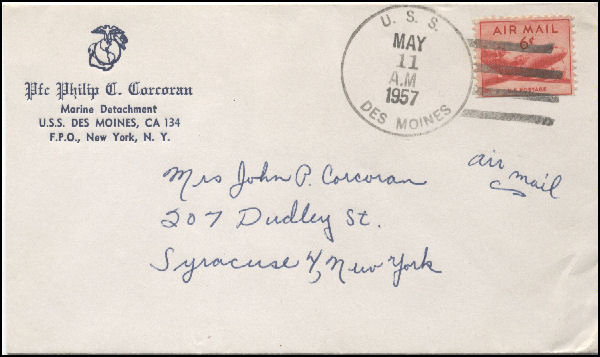 Pfc Philip C. Corcoran
Marine Detachment
U.S.S. DES MOINES, CA 134
F.P.O., New York, N. Y.
U. S. S.
MAY
11
A.M
1957
DES MOINES
AIR MAIL
6¢
U.S. POSTAGE
air mail
Mrs John P. Corcoran
207 Dudley St.
Syracuse 4, New York